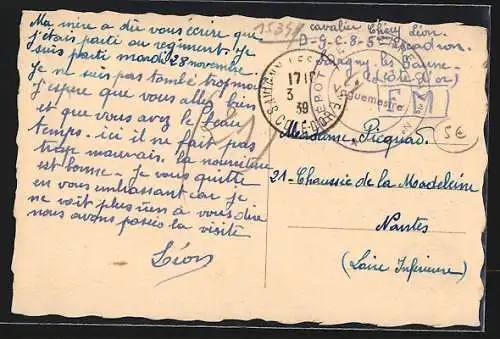 Ma mère a dû vous écrire que
j'étais parti au régiment. Je
suis parti mardi 28 novembre.
Je ne suis pas tombé trop mal
J'espère que vous allez bien
et que vous avez le beau
temps. ici il ne fait pas
trop mauvais. la nourriture
est bonne. Je vous quitte
en vous embrassant car je
ne voit plus rien à vous dire
nous avons passés la visite
Léon
1534
cavalier Léon.
D-G-C. 8-5e Escadron.
Savigny les Beaune.
(Côte d'or)
SAVIGNY LES
17 15
3
39
CÔTE D'OR
DEPOT
guemestre
F M
5E
Madame Picquard
21-Chaussée de la Madeleine
Nantes
(Loire Inférieure)